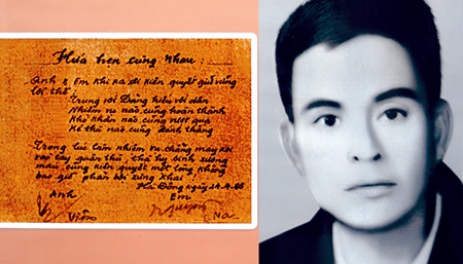 Hứa hẹn cùng nhau:
Anh & Em khi ra đi kiên quyết giữ vững
lời thề
Trung với Đảng hiếu với dân
Nhiệm vụ nào cũng hoàn thành
Khó khăn nào cũng vượt qua
Kẻ thù nào cũng đánh thắng
Trong lúc làm nhiệm vụ chẳng may rơi
vào tay quân thù thà hy sinh xương
máu cũng kiên quyết một lòng không
bao giờ phản bội xưng khai
Hà Đông ngày
Anh Em
Viễn Na